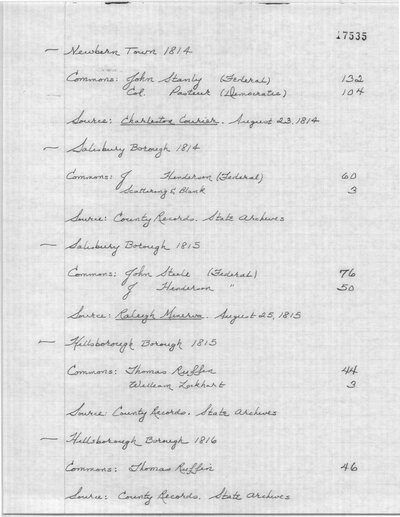 17535
— Newbern Town 1814
Commons: John Stanly (Federal) 132
Col. Pasteur (Democratic) 104
Source: Charleston Courier. August 23, 1814
— Salisbury Borough 1814
Commons: J Henderson (Federal) 60
Scattering & Blank 3
Source: County Records. State Archives
— Salisbury Borough 1815
Commons: John Steele (Federal) 76
J Henderson " 50
Source: Raleigh Minerva. August 25, 1815
— Hillsborough Borough 1815
Commons: Thomas Ruffin 44
William Lockhart 3
Source: County Records. State Archives
— Hillsborough Borough 1816
Commons: Thomas Ruffin 46
Source: County Records. State Archives